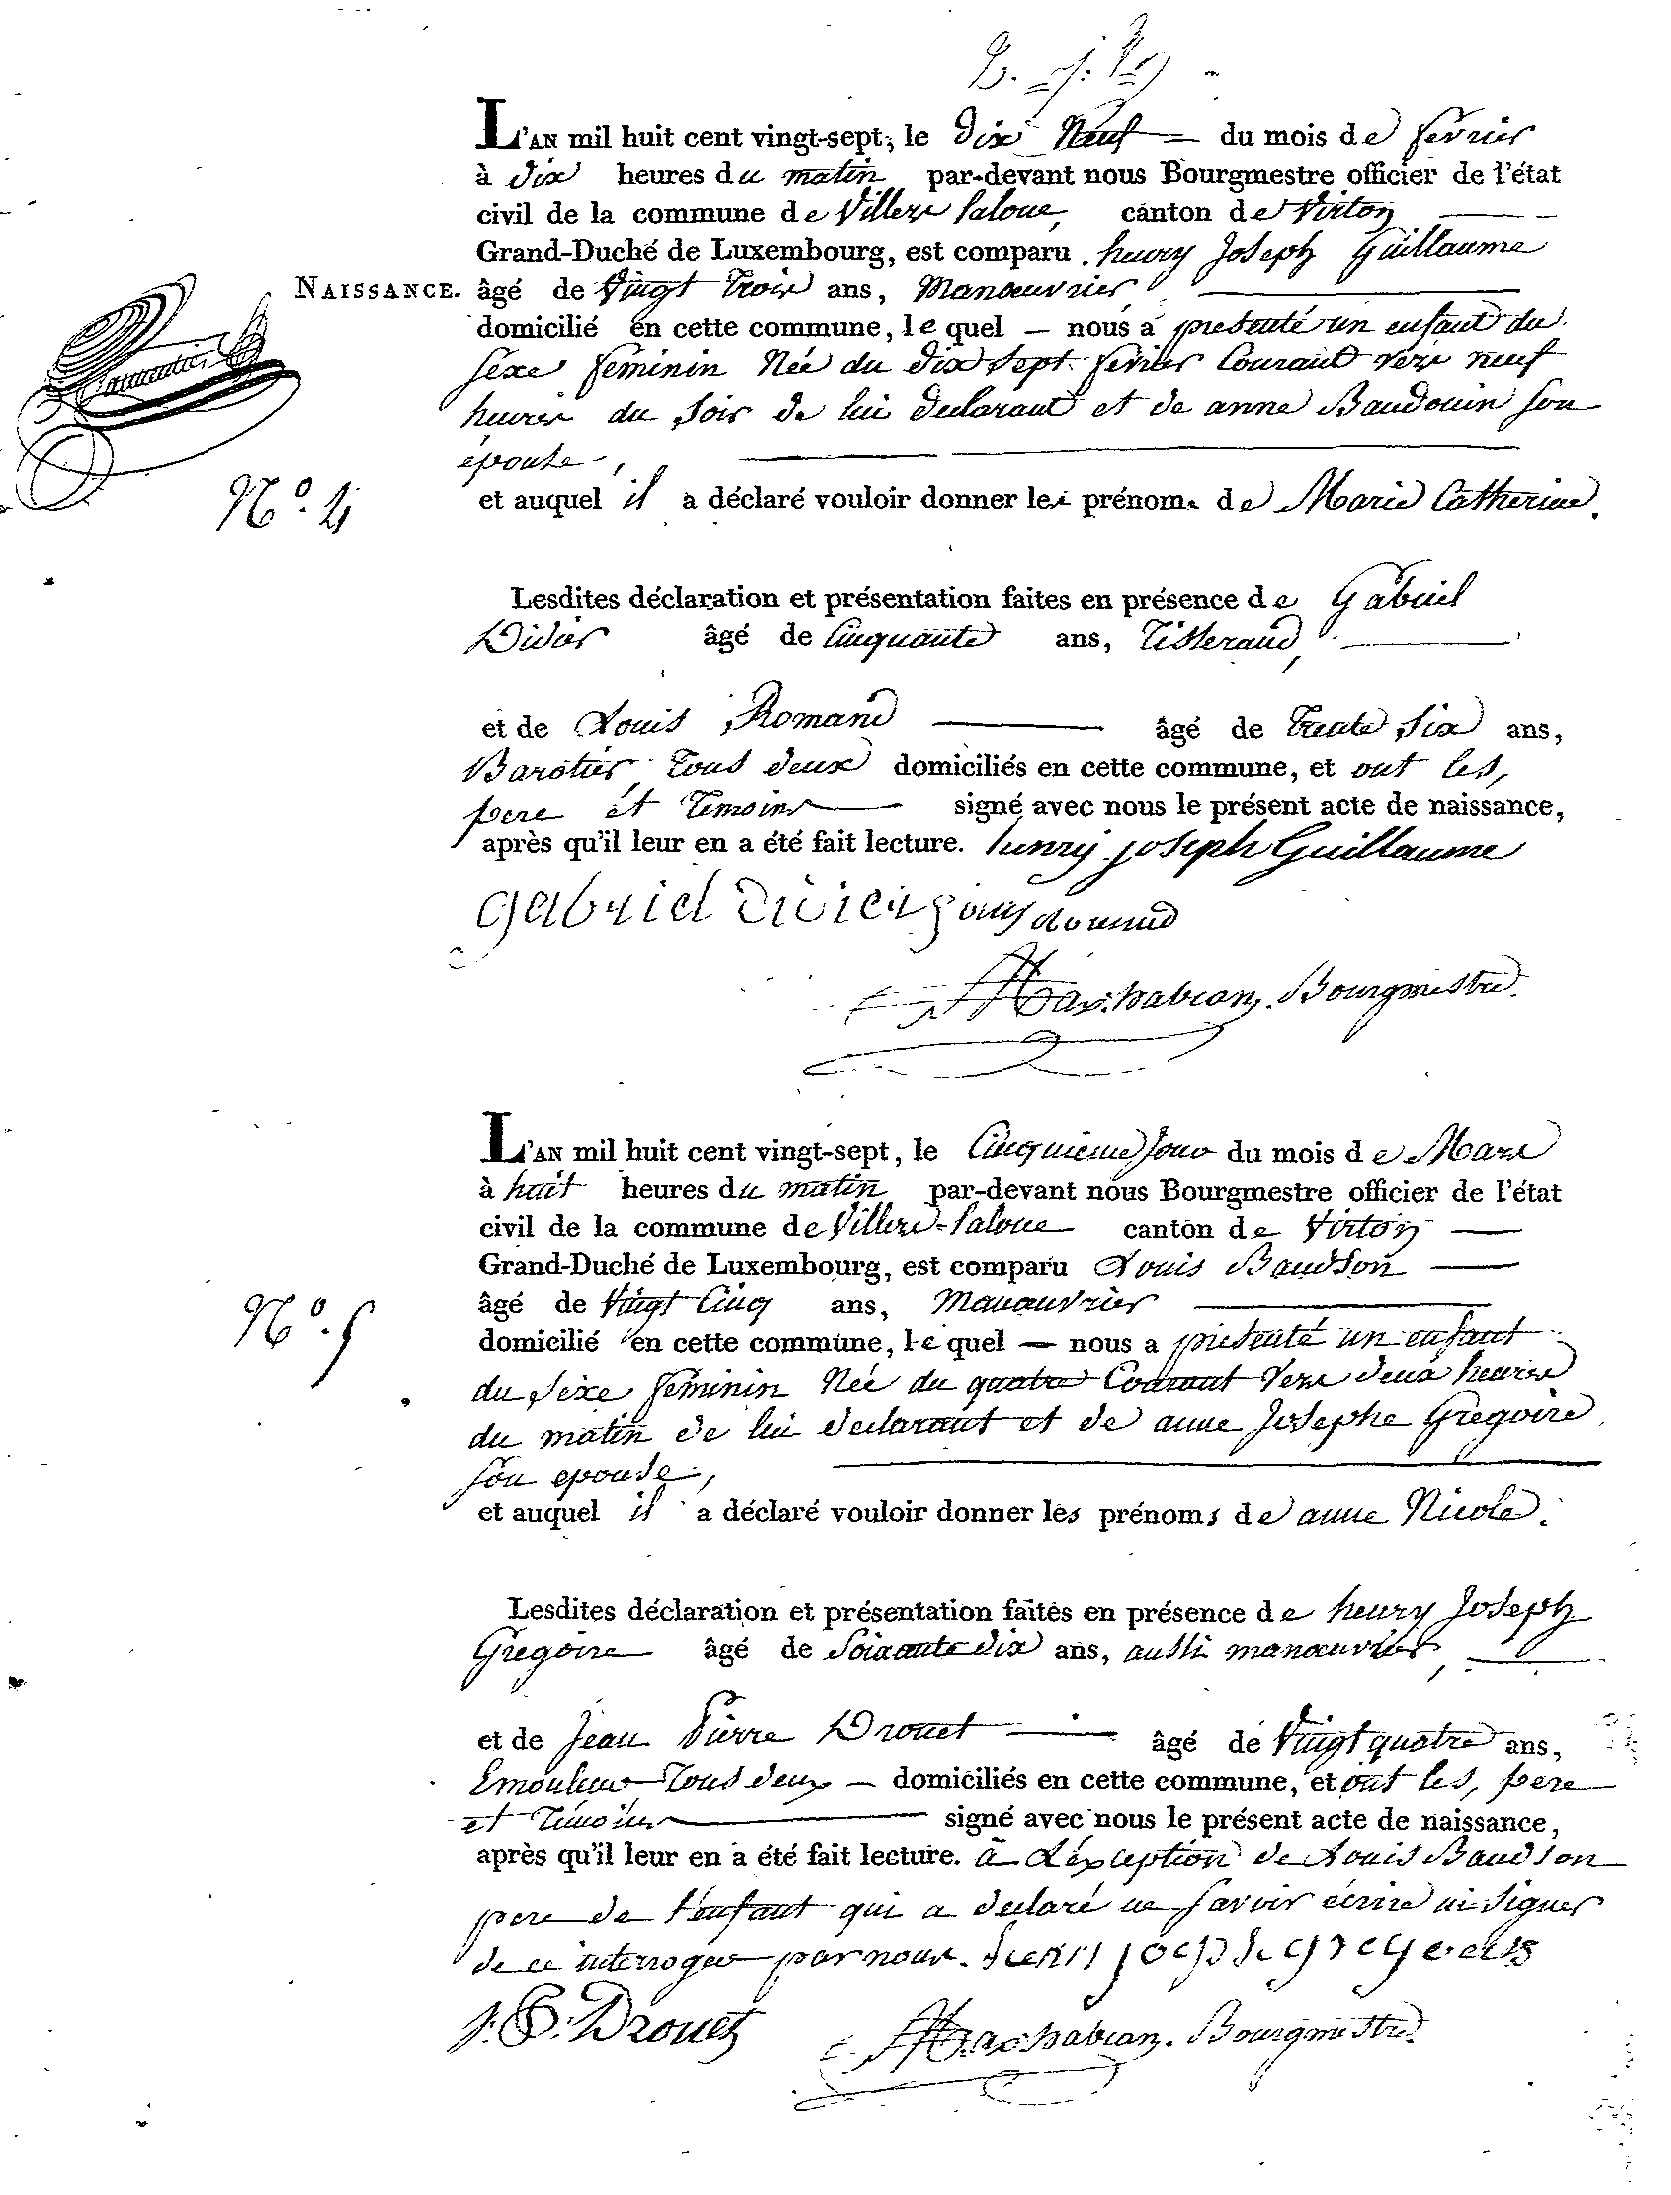 L'AN mil huit cent vingt-sept, le dix Neuf du mois de fevrier
à dix heures du matin par-devant nous Bourgmestre officier de l'état
civil de la commune de Villers laloue, canton de Virton
Grand-Duché de Luxembourg, est comparu henry Joseph Guillaume
NAISSANCE. âgé de Vingt trois ans, Manœuvrier
domicilié en cette commune, le quel — nous a presenté un enfant du
sexe feminin Née du dix sept fevrier Courant vers neuf
heures du soir de lui declarant et de anne Baudouin son
épouse,
N.º 4
et auquel il a déclaré vouloir donner les prénoms de Marie Catherine.
Lesdites déclaration et présentation faites en présence de Gabriel
Didier âgé de Cinquante ans, Tisserand,
et de Louis Romand âgé de Trente Six ans,
Tous deux domiciliés en cette commune, et ont les,
pere et Temoins signé avec nous le présent acte de naissance,
après qu'il leur en a été fait lecture. henry joseph Guillaume
gabriel didier louis romand
Bourgmestre.
L'AN mil huit cent vingt-sept, le Cinquieme jour du mois de Mars
à huit heures du matin par-devant nous Bourgmestre officier de l'état
civil de la commune de Villers-laloue canton de Virton —
Grand-Duché de Luxembourg, est comparu Louis Baudson —
N.º 5
âgé de Vingt Cinq ans, Manœuvrier
domicilié en cette commune, le quel — nous a presenté un enfant
du sexe feminin Née du quatre Courant vers deux heures
du matin de lui declarant et de anne Josephe Gregoire
son epouse,
et auquel il a déclaré vouloir donner les prénoms de anne Nicole.
Lesdites déclaration et présentation faites en présence de henry Joseph
Gregoire âgé de Soixante dix ans, aussi manœuvrier,
et de Jean Pierre Drouet — âgé de Vingt quatre ans,
Emouleur Tous deux — domiciliés en cette commune, et ont les, pere
et Temoins signé avec nous le présent acte de naissance,
après qu'il leur en a été fait lecture. à L'éxception de Louis Baudson
pere de l'enfant qui a declaré ne savoir écrire ni signer
de ce interrogé par nous.
J. P. Drouet Bourgmestre.